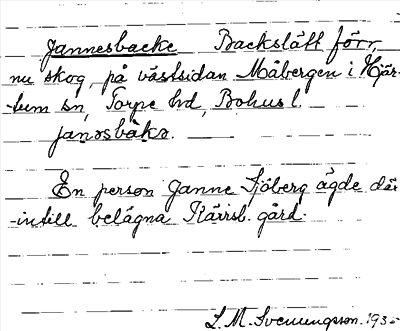 Jannesbacke Backslätt förr,
nu skog, på västsidan Måbergen i Hjär-
-tum sn, Torpe hd, Bohus l.
janəsbakə.
En person Janne Sjöberg ägde där
-intill belägna Kärrsb. gård.
L. M. Svenungsson. 193